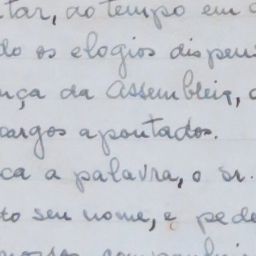 tar, ao tempo em
do os elogios dispen
nça da Assembleia,
cargos apontados.
ca a palavra, o sr.
do seu nome, e pede